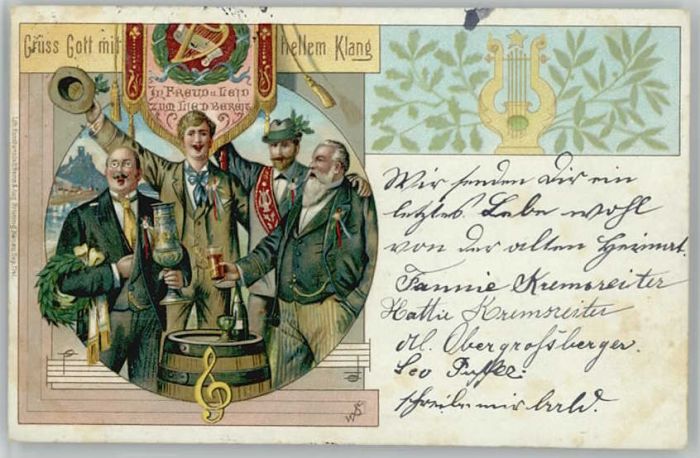 Grüss Gott mit hellem Klang
In Freud u. Leid
zum Lied bereit
Wir senden Dir ein
letztes Lebe wohl
von der alten Heimat.
Fannie Kremsreiter
Hattie Kremsreiter
Obergroßberger.
Leo
schreibe mir bald.